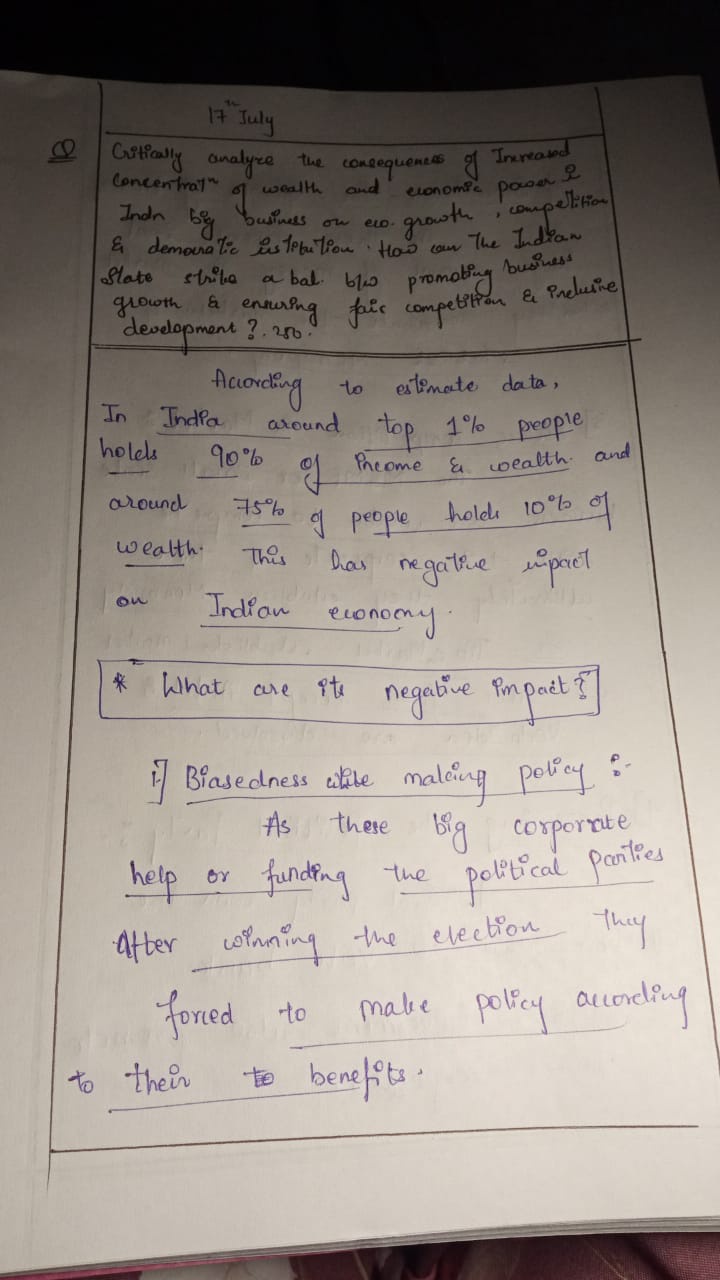 17th July
Q Critically analyze the consequences of Increased
Concentratn of wealth and economic power
Indn big business on eco. growth, competition
& democratic
State strike a bal. b/w promoting business
growth & ensuring fair competition & inclusive
development ? 250.
According to estimate data,
In India around top 1% people
holds 90% of income & wealth. and
around 75% of people holds 10% of
wealth. This has negative impact
on Indian economy.
* What are its negative impact?
1] Biasedness while making policy :-
As these big corporate
help or funding the political parties
After winning the election They
forced to make policy according
to their to benefits.